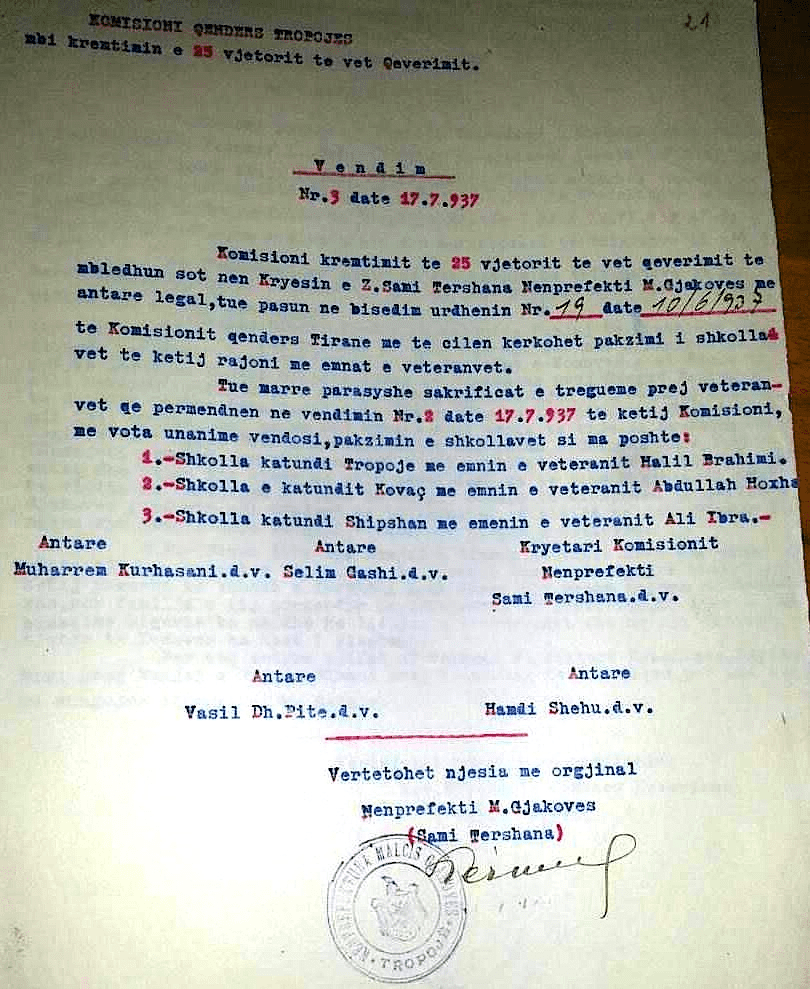 21
KOMISIONI QENDERS TROPOJES
mbi kremtimin e 25 vjetorit te vet Qeverimit.
Vendim
Nr.3 date 17.7.937
Komisioni kremtimit te 25 vjetorit te vet qeverimit te
mbledhun sot nen Kryesin e Z.Sami Tershana Nenprefekti M.Gjakoves me
antare legal,tue pasun ne bisedim urdhenin Nr.19 date 10/6/937
te Komisionit qenders Tirane me te cilen kerkohet pakzimi i shkolla
vet te ketij rajoni me emnat e veteranvet.
Tue marre parasyshe sakrificat e tregueme prej veteran-
vet qe permendnen ne vendimin Nr.2 date 17.7.937 te ketij Komisioni,
me vota unanime vendosi,pakzimin e shkollavet si ma poshte:
1.-Shkolla katundi Tropoje me emnin e veteranit Halil Brahimi.
2.-Shkolla e katundit Kovaç me emnin e veteranit Abdullah Hoxha
3.-Shkolla katundi Shipshan me emenin e veteranit Ali Ibra.-
Antare Antare Kryetari Komisionit
Muharrem Kurhasani.d.v. Selim Gashi.d.v. Nenprefekti
Sami Tershana.d.v.
Antare Antare
Vasil Dh.Pite.d.v. Hamdi Shehu.d.v.
Vertetohet njesia me orgjinal
Nenprefekti M.Gjakoves
(Sami Tershana)
NENPREFEKTURA MALCIS GJAKOVES
TROPOJE